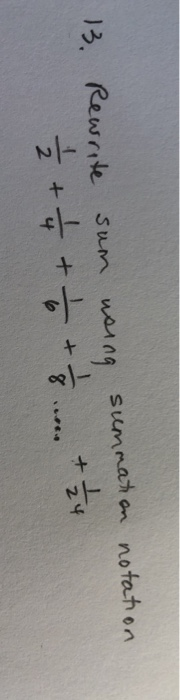 13. Rewrite sum using summation notation
1/2 + 1/4 + 1/6 + 1/8 ..... + 1/24